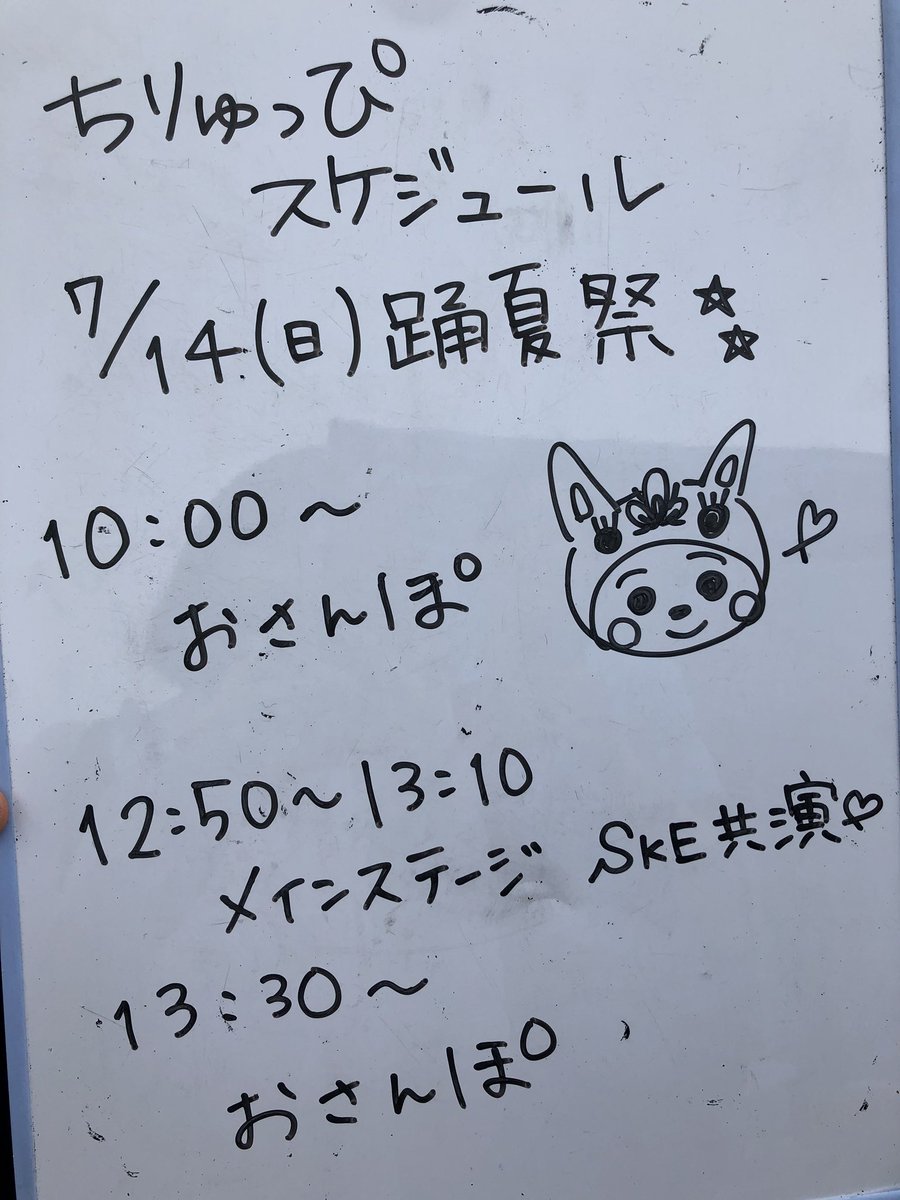 ちりゅっぴ
スケジュール
7/14(日)踊夏祭☆☆
10:00~
おさんぽ
12:50~13:10
メインステージ SKE共演♡
13:30~
おさんぽ